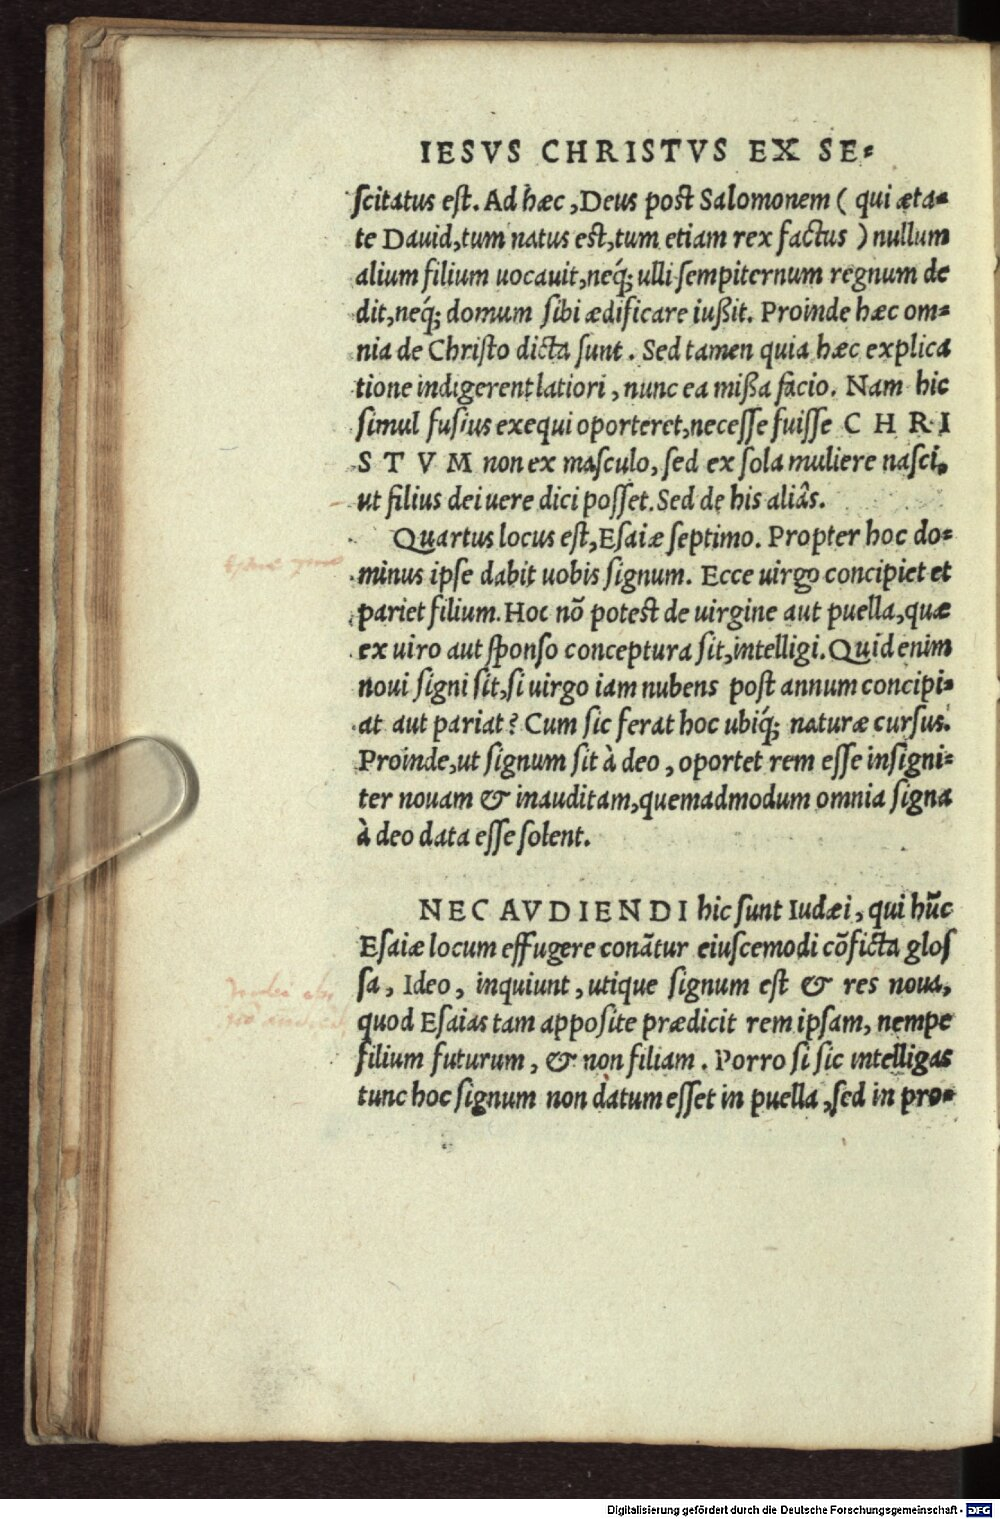 IESVS CHRISTVS EX SE⸗
ſcitatus eſt. Ad hæc, Deus poſt Salomonem ( qui æta⸗
te Dauid, tum natus eſt, tum etiam rex factus ) nullum
alium filium uocauit, neq́; ulli ſempiternum regnum de
dit, neq́; domum ſibi ædificare iußit. Proinde hæc om⸗
nia de Chriſto dicta ſunt. Sed tamen quia hæc explica
tione indigerent latiori, nunc ea mißa facio. Nam hic
ſimul fuſius exequi oporteret, neceſſe fuiſſe C H R I
S T V M non ex maſculo, ſed ex ſola muliere naſci,
ut filius dei uere dici poſſet. Sed de his aliâs.
Quartus locus eſt, Eſaiæ ſeptimo. Propter hoc do⸗
minus ipſe dabit uobis ſignum. Ecce uirgo concipiet et
pariet filium. Hoc nõ poteſt de uirgine aut puella, quæ
ex uiro aut ſponſo conceptura ſit, intelligi. Quid enim
noui ſigni ſit, ſi uirgo iam nubens poſt annum concipi⸗
at aut pariat? Cum ſic ferat hoc ubiq́; naturæ curſus.
Proinde, ut ſignum ſit à deo, oportet rem eſſe inſigni⸗
ter nouam & inauditam, quemadmodum omnia ſigna
à deo data eſſe ſolent.
NEC AVDIENDI hic ſunt Iudæi, qui hũc
Eſaiæ locum effugere conãtur eiuſcemodi cõficta gloſ
ſa, Ideo, inquiunt, utique ſignum eſt & res noua,
quod Eſaias tam appoſite prædicit rem ipſam, nempe
filium futurum, & non filiam. Porro ſi ſic intelligas
tunc hoc ſignum non datum eſſet in puella, ſed in pro⸗
Digitalisierung gefördert durch die Deutsche Forschungsgemeinschaft - DFG